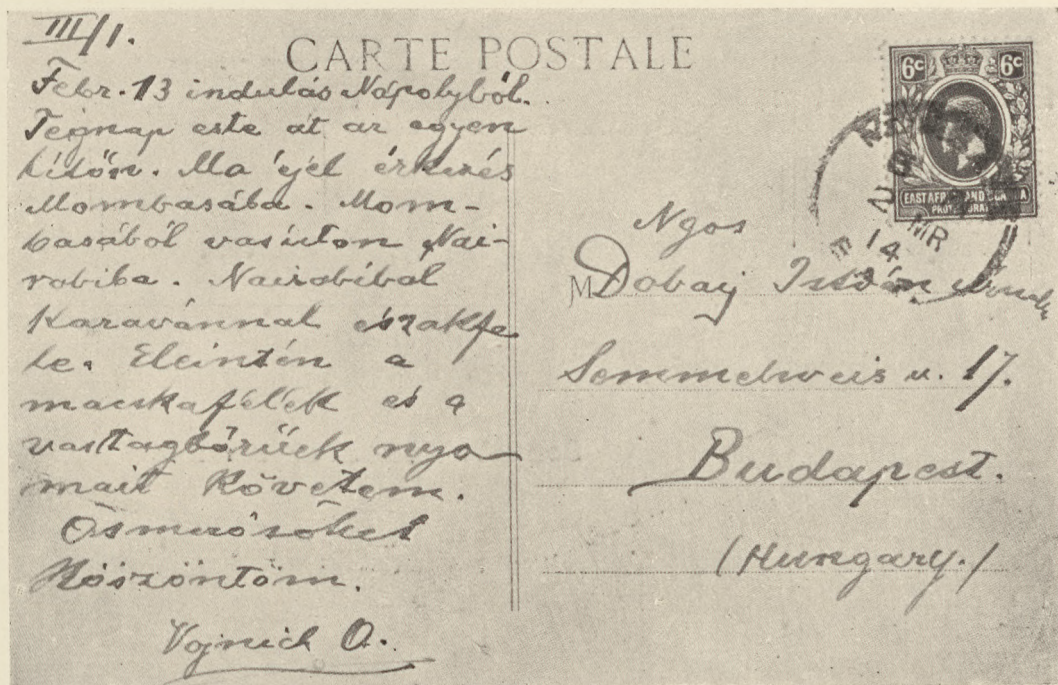 III/1.
CARTE POSTALE
Febr. 13 indulás Nápolyból.
Tegnap este át az egyen
lítőn. Ma éjel érkezés
Mombasába. Mom-
basából vasúton Nai-
robiba. Nairobiból
Karavánnal északfe
le. Eleintén a
macskafélék és a
vastagbőrűek nyo
mait követem.
Ösmerősöket
Köszöntöm.
Vojnich O.
6c 6c
EAST AFRICA AND UGANDA
PROTECTORATES
MR
14
Ngos
M Dobay István
Semmelweis u. 17.
Budapest.
(Hungary.)